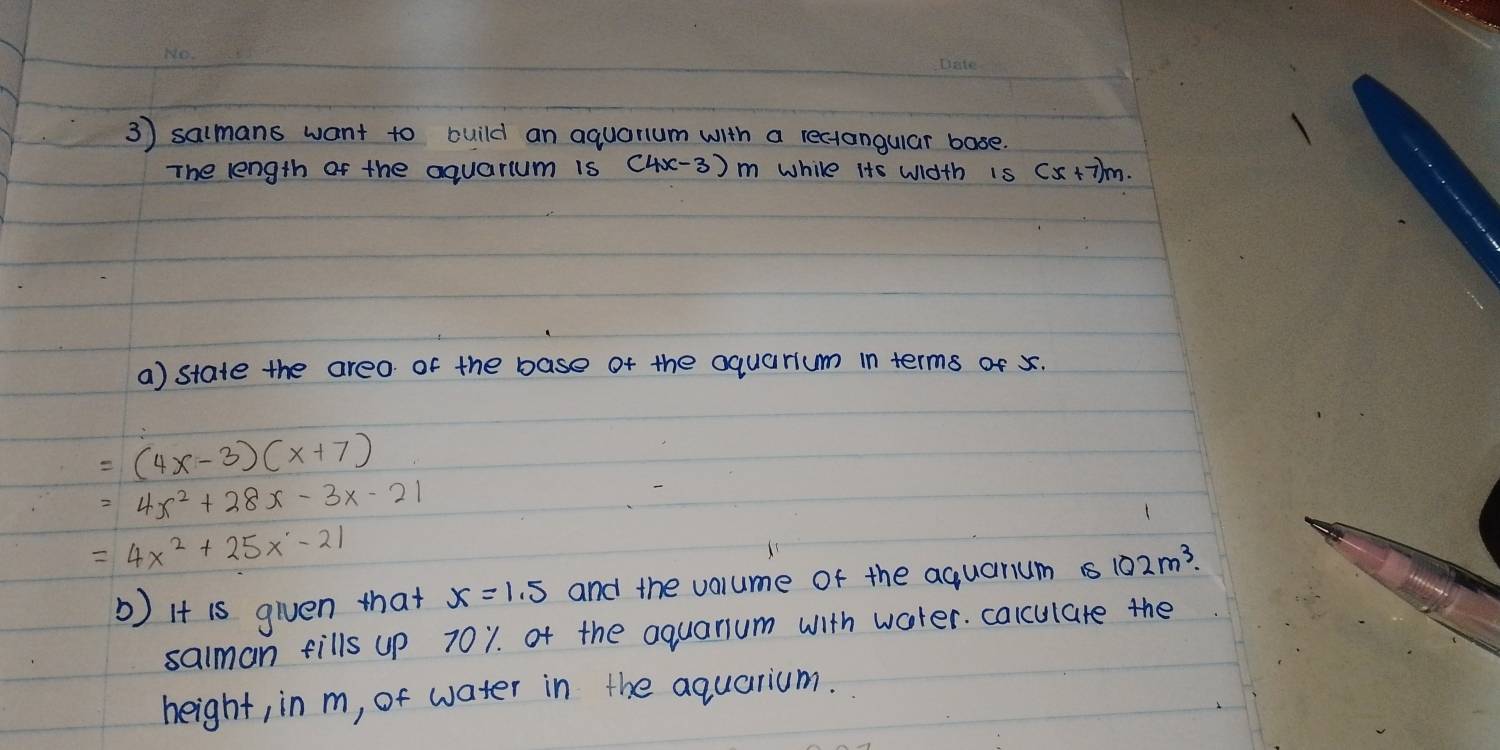 No.
Date
3) salmans want to build an aquarium with a rectangular base.
The length of the aquarium is (4x-3) m while its width is (x+7)m.
a) state the area of the base of the aquarium in terms of x.
= (4x-3)(x+7)
= 4x² + 28x - 3x - 21
= 4x² + 25x - 21
b) It is given that x = 1.5 and the volume of the aquarium is 102m³.
salman fills up 70% of the aquarium with water. calculate the
height, in m, of water in the aquarium.